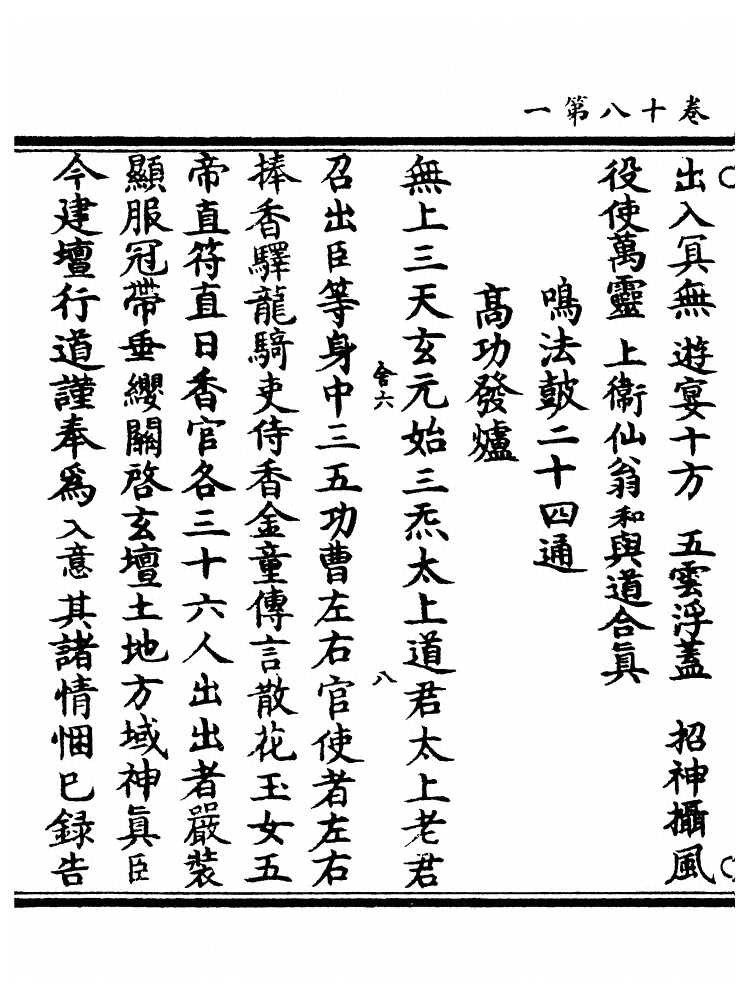 一第八十卷
出入冥無 遊宴十方 五雲浮蓋 招神攝風
役使萬靈 上衛仙翁和與道合眞
鳴法鼓二十四通
高功發爐
無上三天玄元始三炁太上道君太上老君
舍六 八
召出臣等身中三五功曹左右官使者左右
捧香驛龍騎吏侍香金童傳言散花玉女五
帝直符直日香官各三十六人出出者嚴裝
顯服冠帶垂纓關啓玄壇土地方域神眞臣
今建壇行道謹奉爲入意其諸情悃已録告